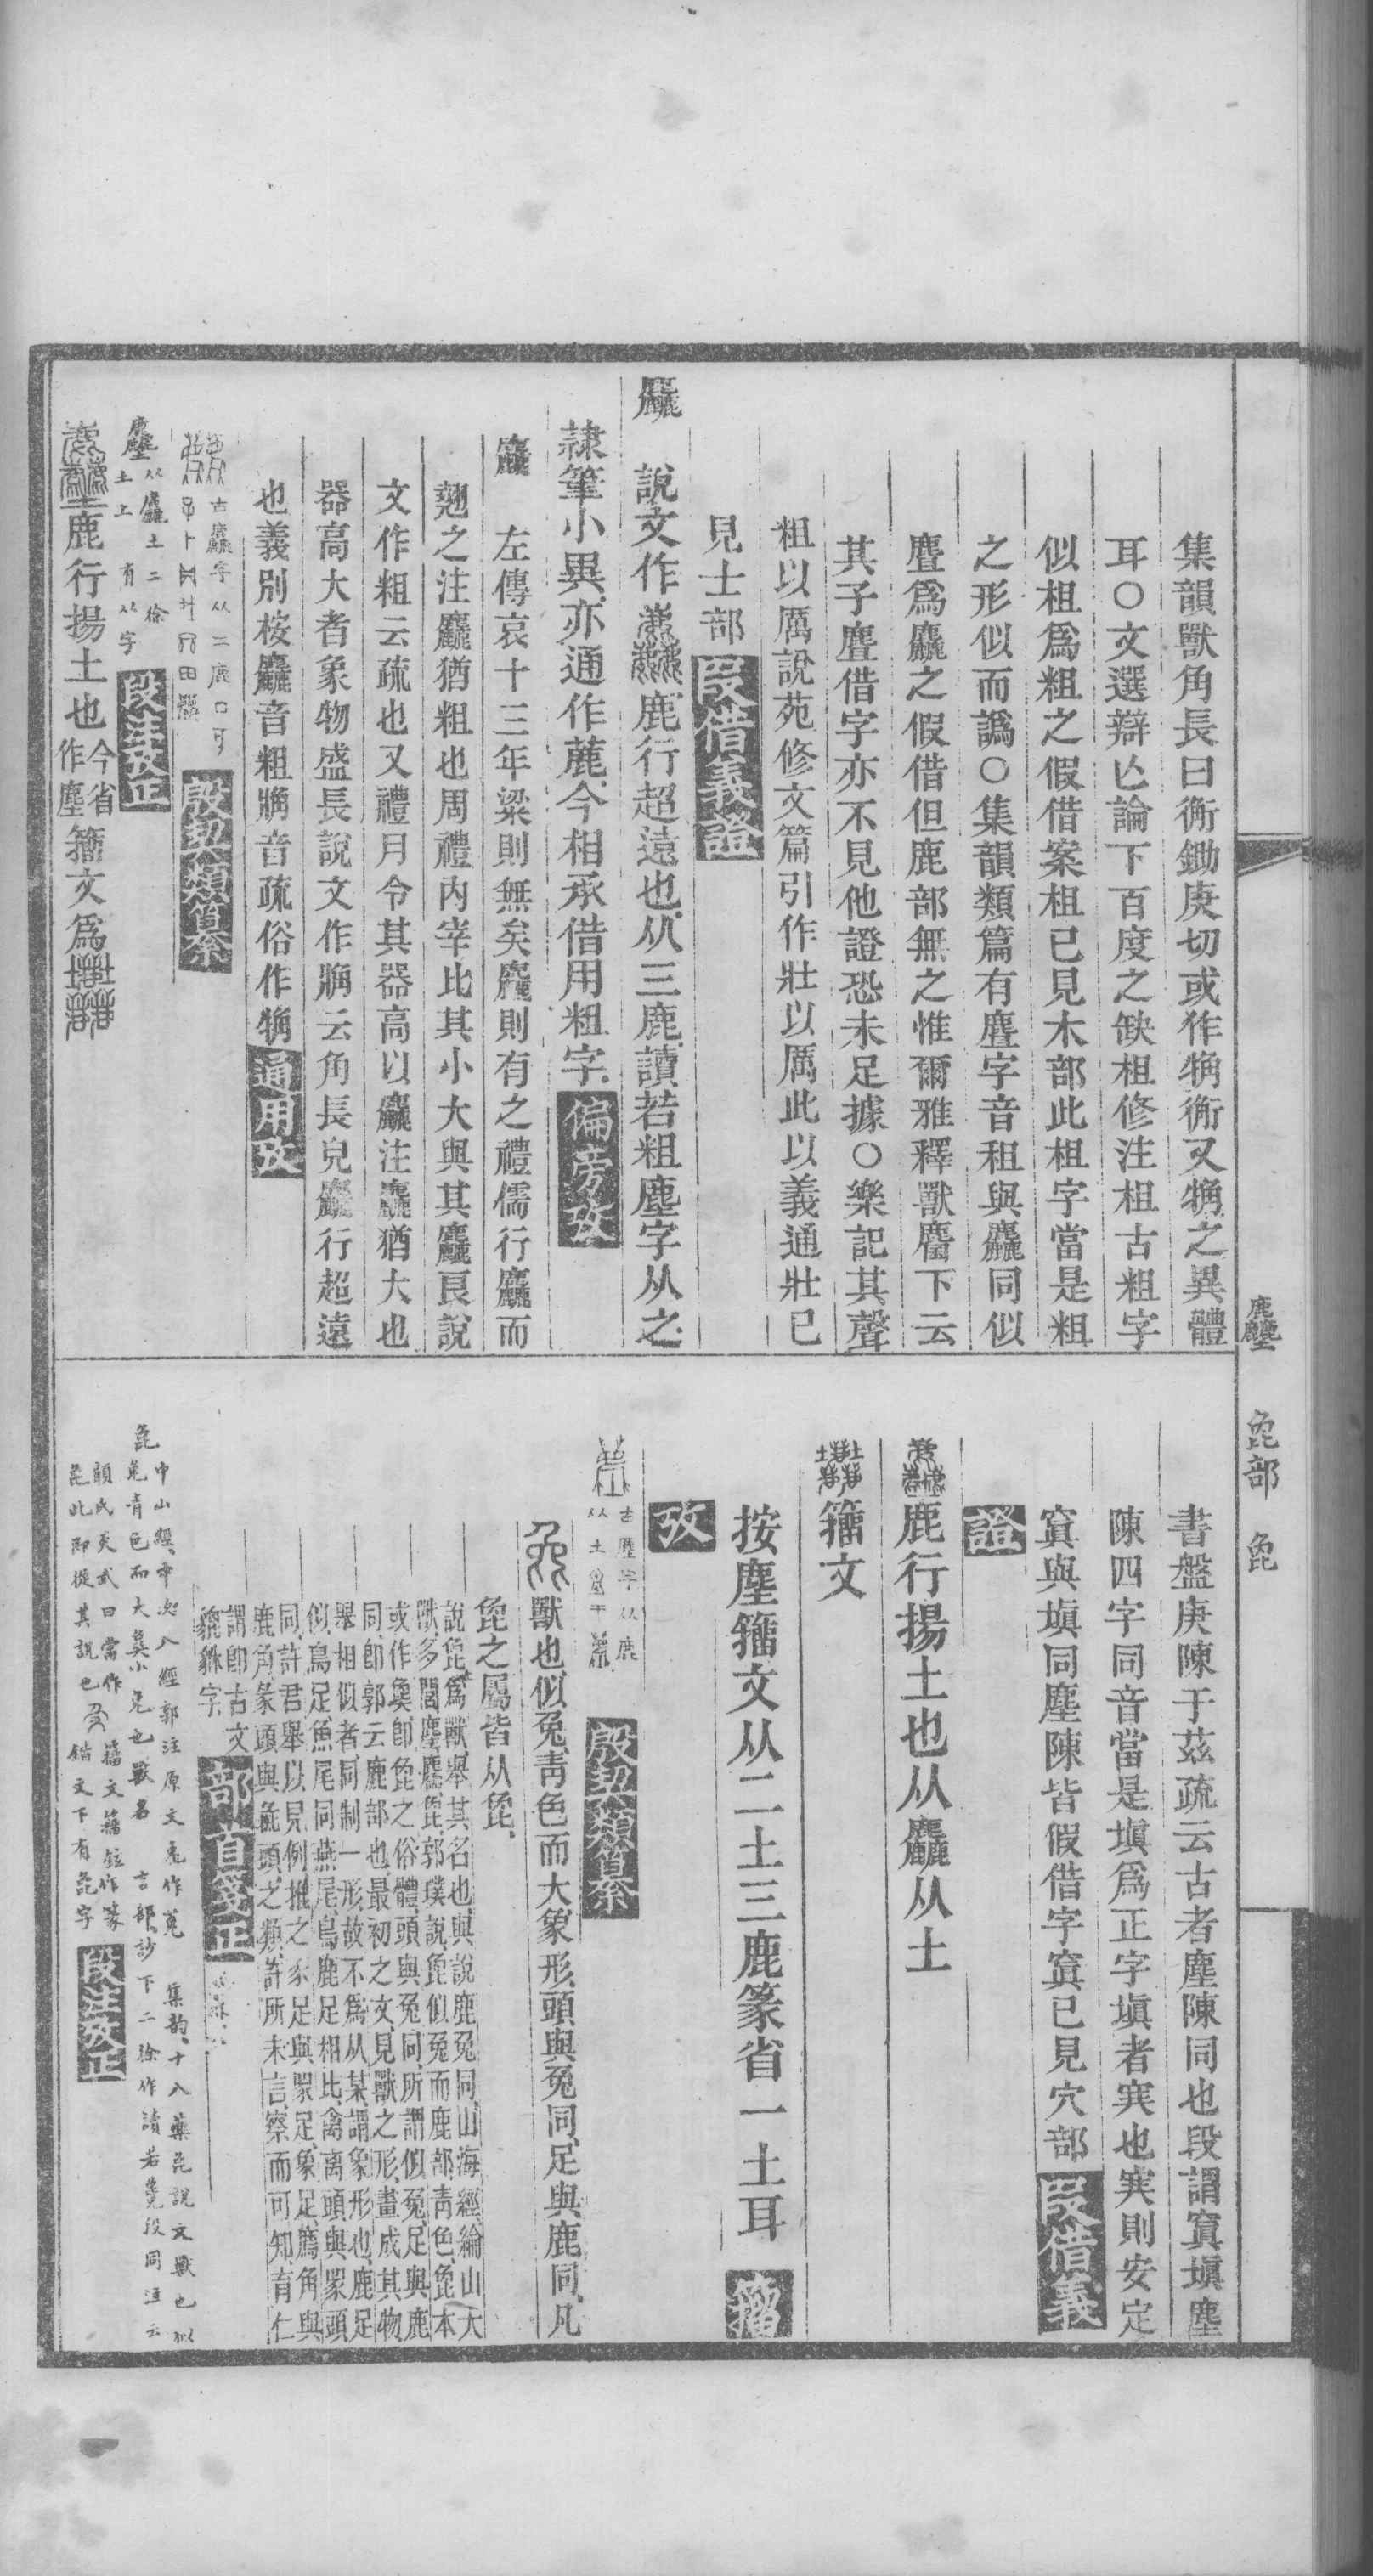 集韻獸角長曰衡鋤庚切或作觕衡又觕之異體
耳○文選辯亡論下百度之缺粗修注粗古粗字
似柤爲粗之假借案柤已見木部此柤字當是粗
之形似而譌○集韻類篇有麆字音租與麤同似
麆爲麤之假借但鹿部無之惟爾雅釋獸麕下云
其子麆借字亦不見他證恐未足據○樂記其聲
粗以厲說苑修文篇引作壯以厲此以義通壯已
見士部 段借義證
麤 說文作 鹿行超遠也从三鹿讀若粗塵字从之
隷筆小異亦通作麄今相承借用粗字 偏旁攷
麤 左傳哀十三年粱則無矣麤則有之禮儒行麤而
翹之注麤猶粗也周禮內宰比其小大與其麤良說
文作粗云疏也又禮月令其器高以麤注麤猶大也
器高大者象物盛長說文作觕云角長皃麤行超遠
也義別桉麤音粗觕音疏俗作觕 通用攷
古麤字从三鹿 殷契類纂
麤 从麤土二徐土上有从字 段注攷正
鹿行揚土也今省作塵籒文爲
麤 麤 㲋部 㲋
書盤庚陳于茲疏云古者塵陳同也段謂窴塡塵
陳四字同音當是塡爲正字塡者窒也窒則安定
窴與塡同塵陳皆假借字窴已見穴部 段借義
證
鹿行揚土也从麤从土
籒文
按塵籒文从二土三鹿篆省一土耳 籒
攷
古塵字从鹿从土 殷契類纂
獸也似兔青色而大象形頭與兔同足與鹿同凡
㲋之屬皆从㲋
說㲋爲獸舉其名也與說鹿兔同山海經綸山大
獸多閭麈麢㲋郭璞說㲋似兔而鹿部青色㲋本
或作㚟卽㲋之俗體頭與兔同所謂似兔足與鹿
同卽郭云鹿部也最初之文見獸之形畫成其物
舉相似者同制一形故不爲从某謂象形也鹿足
似鳥足魚尾同燕尾鳥鹿足相比禽离頭與兕頭
同許君舉以見例推之豕足與㣇足象足廌角與
鹿角象頭與兔頭之類許所未言察而可知有仁
謂卽古文
貔貅字 部首箋正
㲋 中山經中次八經郭注原文㲋作㚟 集韵十八藥㲋說文獸也似
兔青色而大㚟小兔也獸名 言部訬下二徐作讀若毚段同注云
顧氏炎武曰當作 籒文籒竝作篆
㲋此即從其說也 鍇文下有㲋字 段注攷正